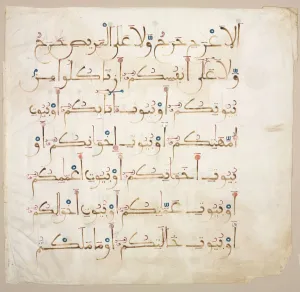 الاعرج حرج ولا على المريض حرج
ولا على انفسكم ان تاكلوا من
بيوتكم او بيوت ابايكم او بيوت
امهتكم او بيوت اخونكم او
بيوت اخوتكم او بيوت اعممكم
او بيوت عمتكم او بيوت اخولكم
او بيوت خلتكم او ما ملكتم